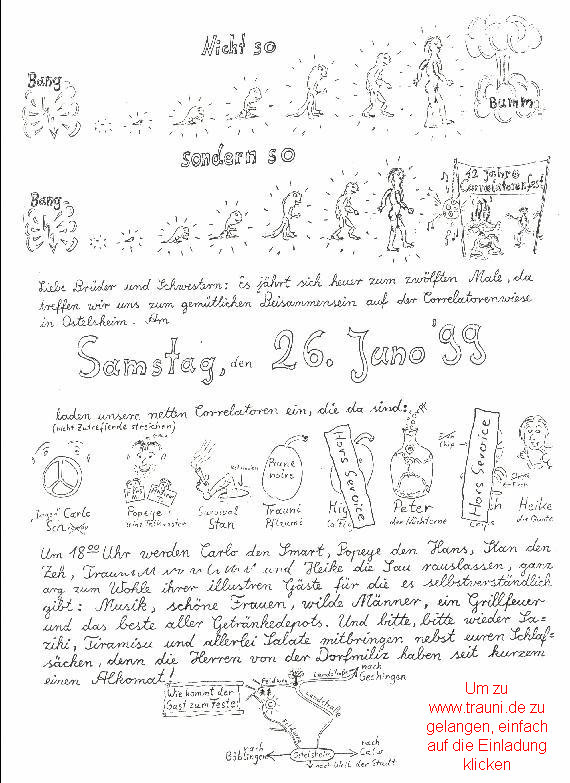 Nicht so
Bang
Bumm
sondern so
Bang
12 Jahre
Correlatorenfest
Liebe Brüder und Schwestern: Es jährt sich heuer zum zwölften Male, da
treffen wir uns zum gemütlichen Beisammensein auf der Correlatorenwiese
in Ostelsheim. Am
Samstag, den 26. Juno '99
laden unsere netten Correlatoren ein, die da sind:
(nicht Zutreffende streichen)
Carlo
Popeye
Survival
Stan
Prune
noire
Trauni
Pflzumi
Hors Service
Peter
der Nüchterne
Chip
Hors Service
Heike
die Gunte
Um 18⁰⁰ Uhr werden Carlo den Smart, Popeye den Hans, Stan den
Zeh, und Heike die Sau rauslassen, ganz
arg zum Wohle ihrer illustren Gäste für die es selbstverständlich
gibt: Musik, schöne Frauen, wilde Männer, ein Grillfeuer
und das beste aller Getränkedepots. Und bitte, bitte wieder Za=
ziki, Tiramisu und allerlei Salate mitbringen nebst euren Schlaf=
säcken, denn die Herren von der Dorfmiliz haben seit kurzem
einen Alkomat!
Wie kommt der
Gast zum Feste?
Feldweg
Landstraße
nach
Gechingen
Landstraße
nach
Böblingen
Ostelsheim
nach
Calw
nach Weil der Stadt
Um zu
www.trauni.de zu
gelangen, einfach
auf die Einladung
klicken